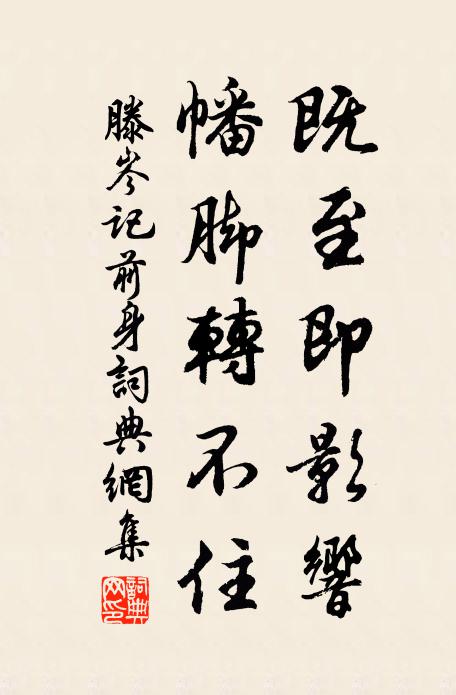 既至即影響
幡腳轉不住
滕岑記前身詞典網集
詞典網印